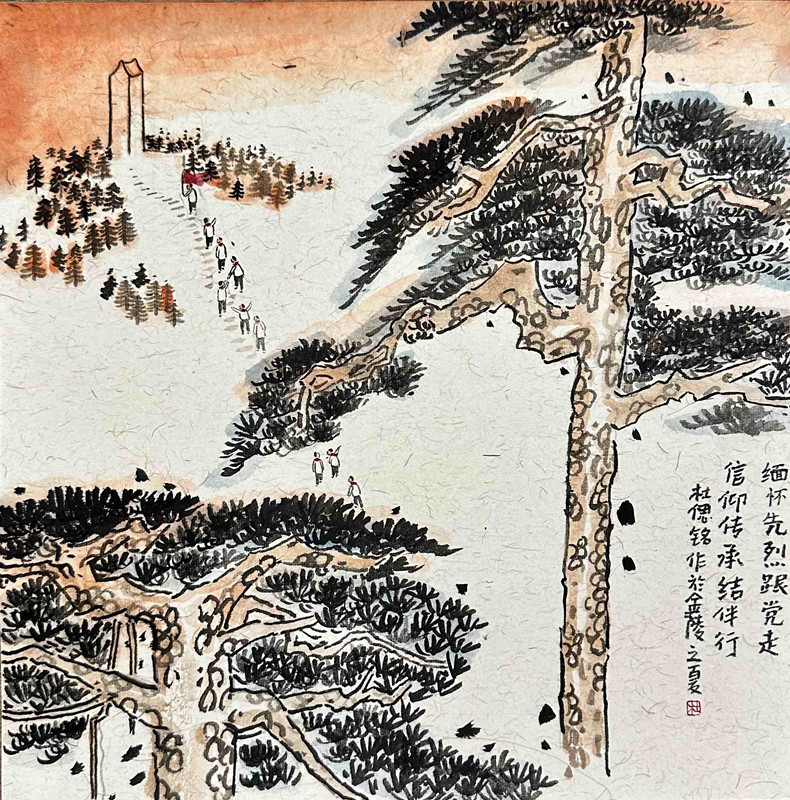 缅怀先烈跟党走
信仰传承结伴行
杜偲铭作于金陵之夏
杜